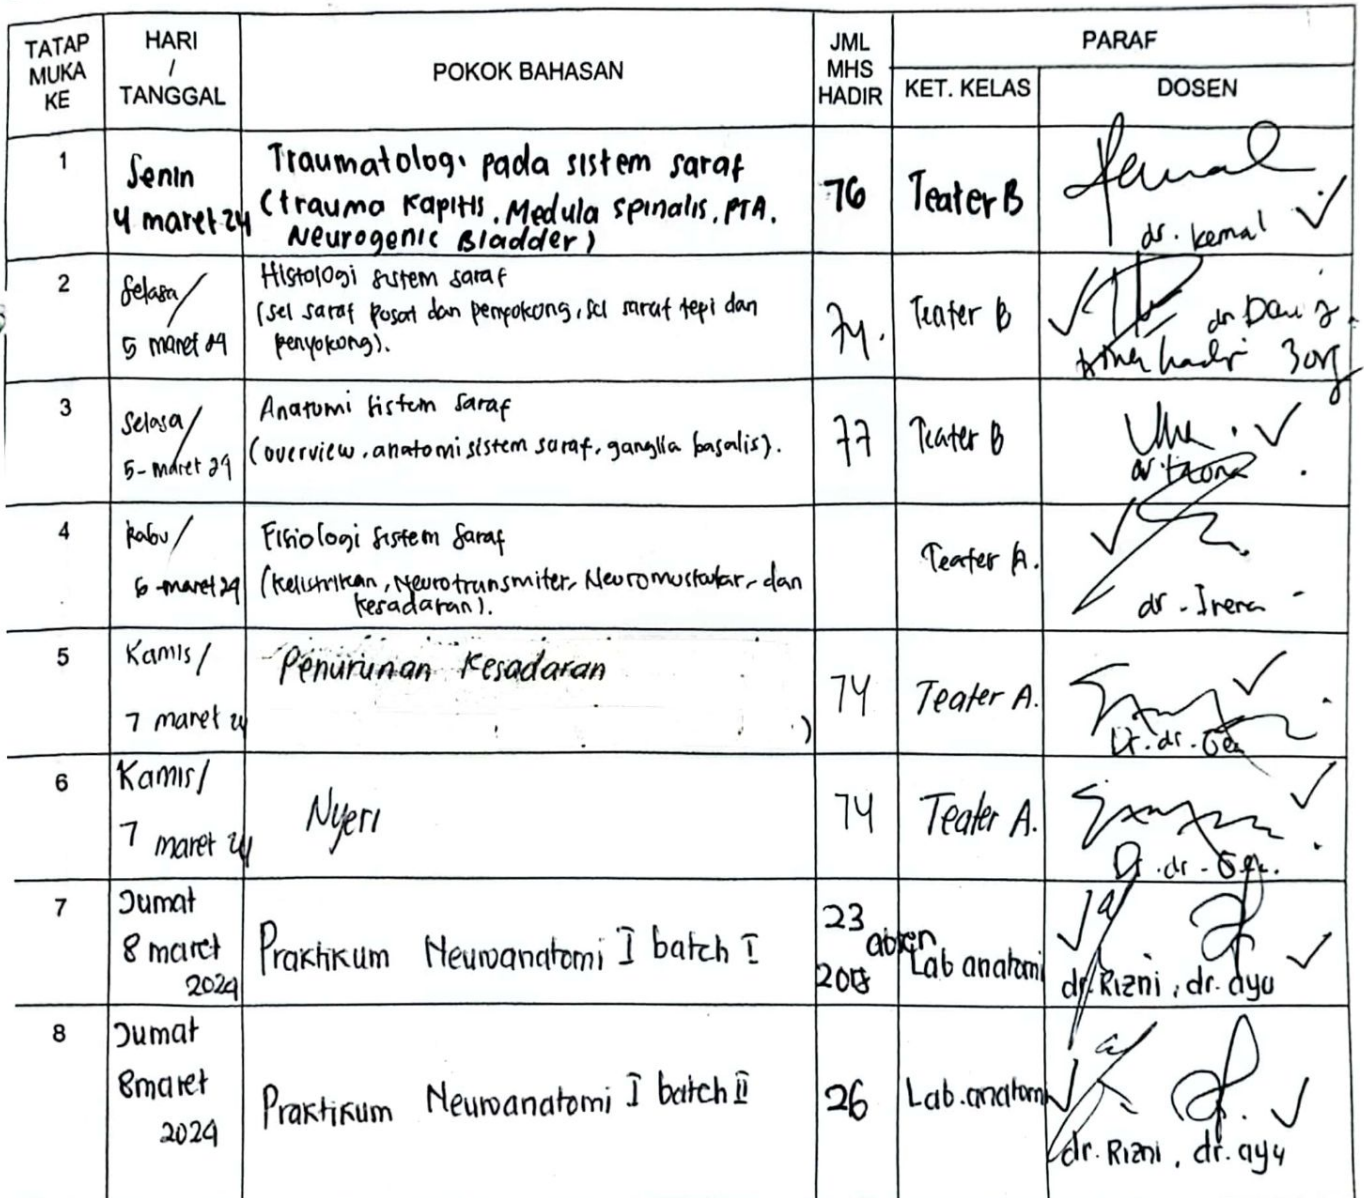 TATAP MUKA KE
HARI / TANGGAL
POKOK BAHASAN
JML MHS HADIR
PARAF
KET. KELAS
DOSEN
1
Senin
4 maret 24
Traumatologi pada sistem saraf
(trauma Kapitis, Medula spinalis, PTA,
Neurogenic Bladder)
76
Teater B
dr. Kemal
2
Selasa/
5 maret 24
Histologi sistem saraf
(sel saraf pusat dan penyokong, sel saraf tepi dan
penyokong).
74.
Teater B
dr Davi
3
Selasa/
5-maret 24
Anatomi sistem saraf
(overview, anatomi sistem saraf, ganglia basalis).
77
Teater B
4
Rabu/
6-maret 24
Fisiologi sistem saraf
(kelistrikan, Neurotransmiter, Neuromuskular, dan
kesadaran).
Teater A.
dr. Irena
5
Kamis/
7 maret 24
Penurunan Kesadaran
)
74
Teater A.
Dr. dr. Gea
6
Kamis/
7 maret 24
Nyeri
74
Teater A.
Dr. dr. Gea.
7
Jumat
8 maret
2024
Praktikum Neuroanatomi I batch I
23
absen
Lab anatomi
dr. Rizni, dr. ayu
8
Jumat
8maret
2024
Praktikum Neuroanatomi I batch II
26
Lab.anatomi
dr. Rizni, dr. ayu